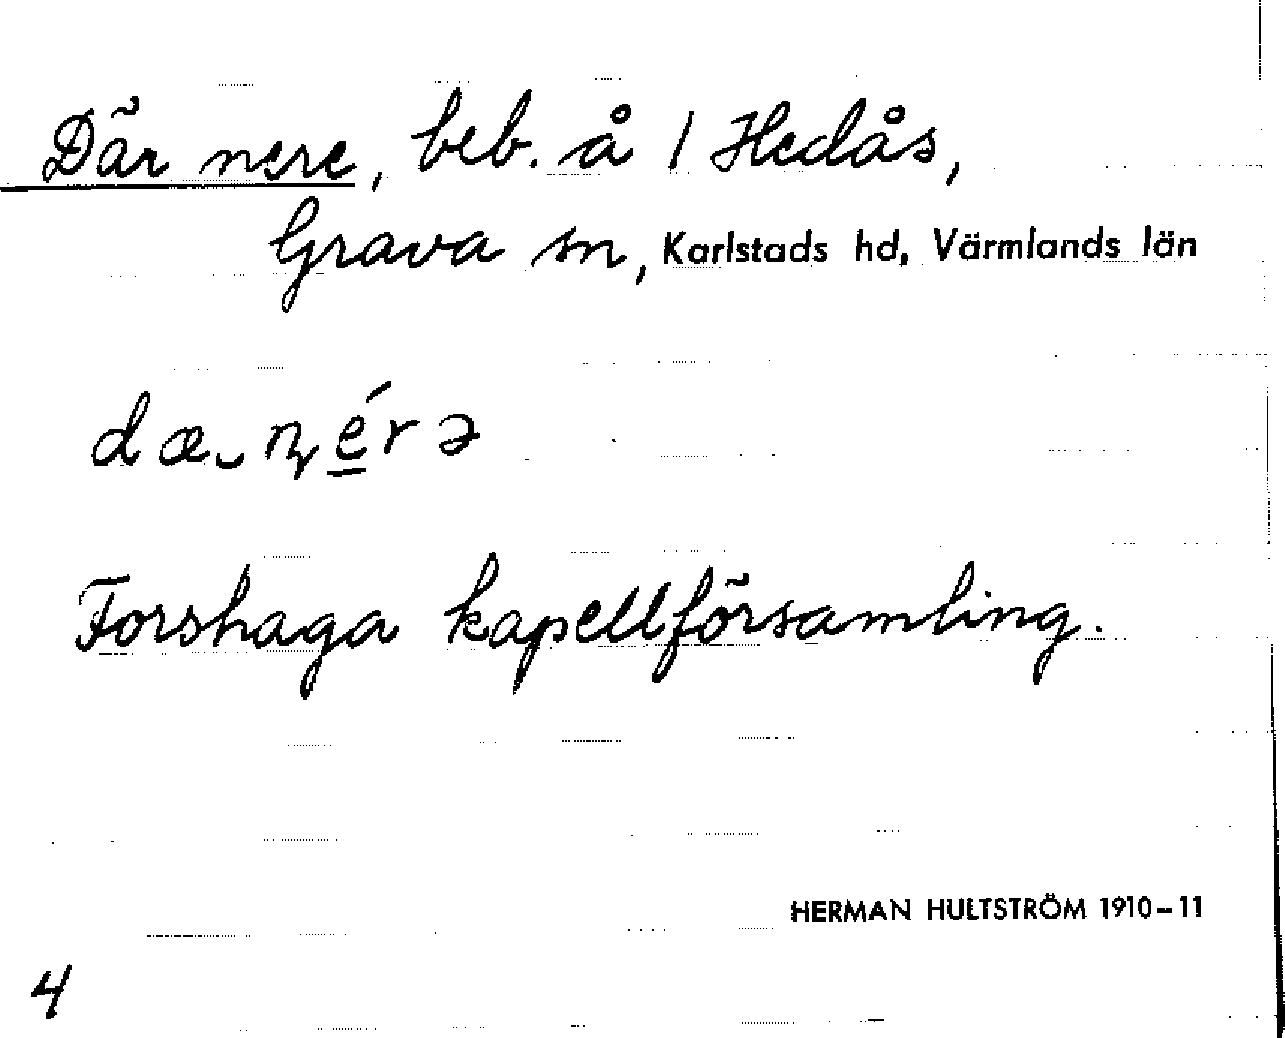 Där nere, beb. å 1 Hedås,
Grava sn, Karlstads hd, Värmlands län
dæ‿ɳérə
Forshaga kapellförsamling.
HERMAN HULTSTRÖM 1910-11
4